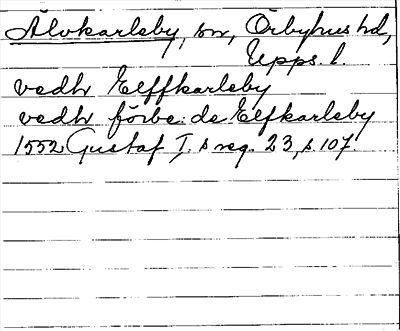 Älvkarleby, sn, Örbyhus hd,
Upps. l.
vedh Elffkarleby
vedh förbe:de Elfkarleby
1552 Gustaf I. s reg. 23, s. 107.